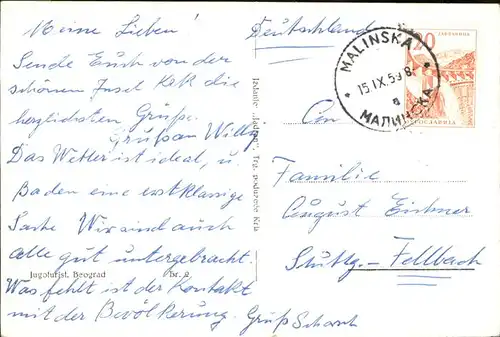 Meine Lieben!
Sende Euch von der
schönen Insel Krk die
herzlichsten Grüße.
Gruß an Willy
Das Wetter ist ideal, u.
Baden eine erstklassige
Sache Wir sind auch
alle gut untergebracht.
Was fehlt ist der Kontakt
mit der Bevölkerung. Gruß
Jugoturist, Beograd Br. 2
Izdanje
Trg. poduzeće Krk
Deutschland
MALINSKA
15.IX.59.8
a
МАЛИНСКА
20
JUGOSLAVIJA
An
Familie
August Eichner
Stuttg.- Fellbach